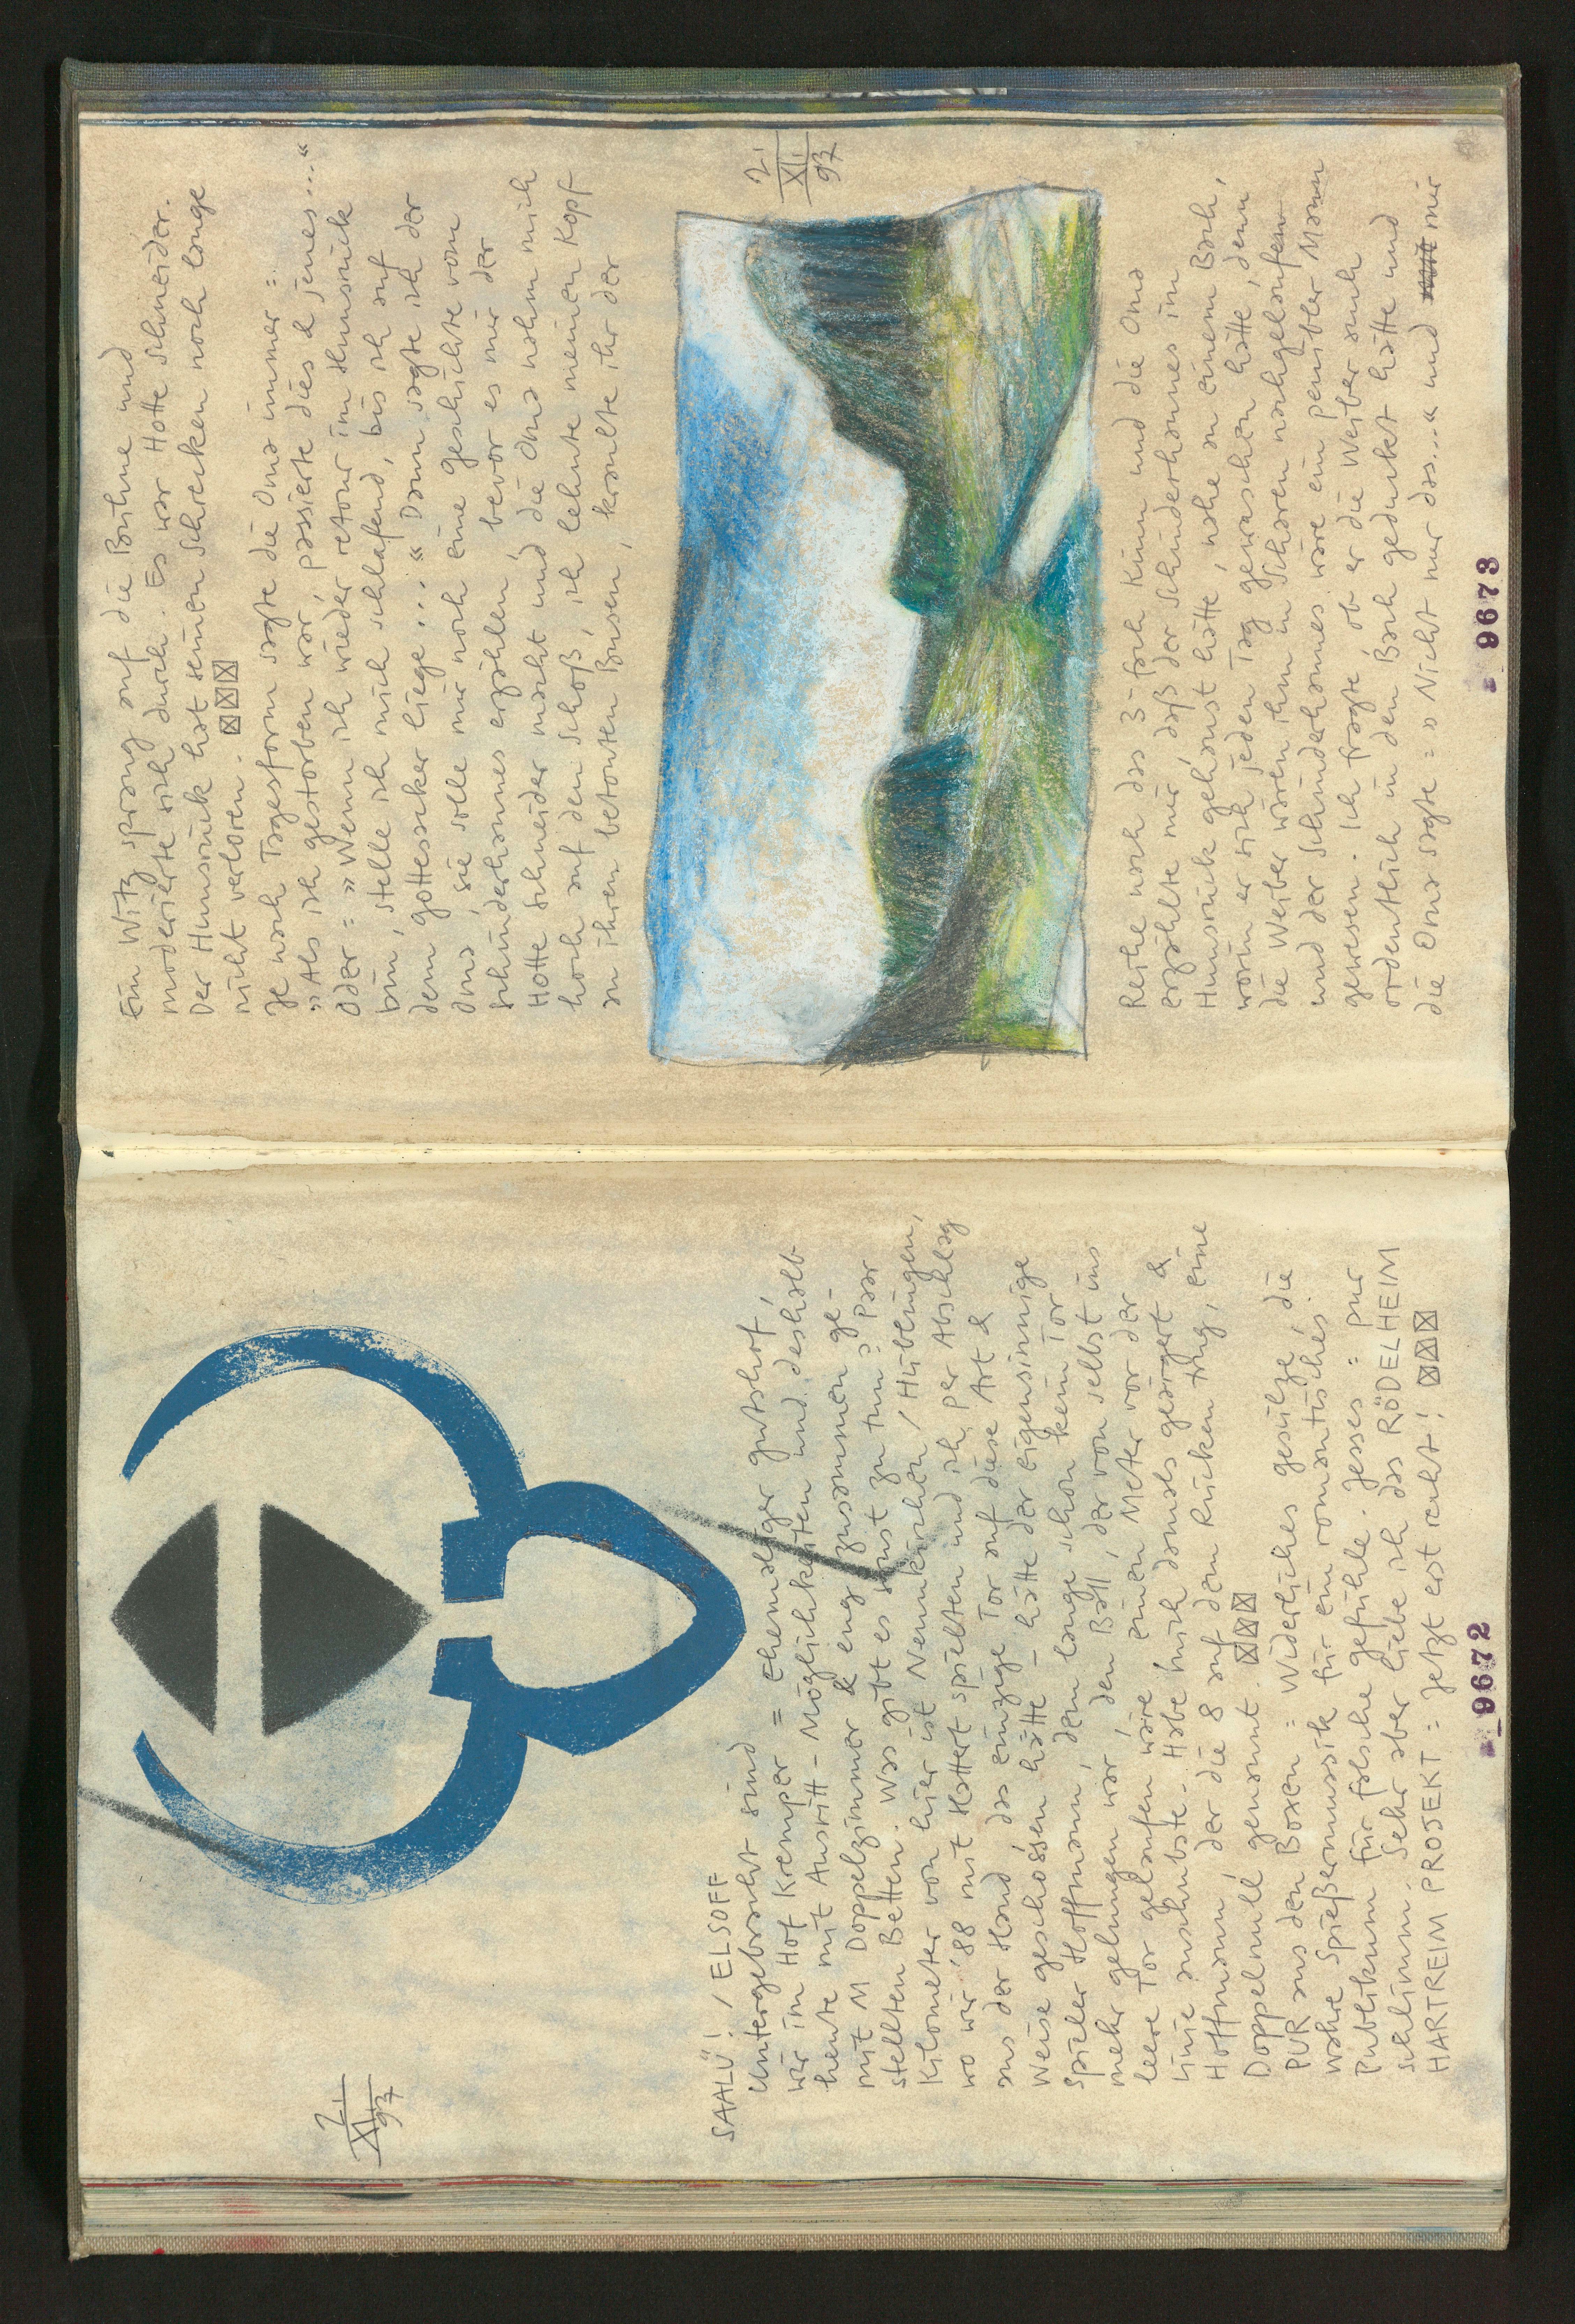 2.
XII
97
SAALÜ! / ELSOFF
Untergebracht sind
wir im Hof Kremper = Ehemaliger Gutshof,
heute mit Ausritt-Möglichkeiten und deshalb
mit 11 Doppelzimmer & eng zusammen ge-
stellten Betten. Was gibt es sonst zu tun? Paar
Kilometer von hier ist Neunkirchen / Hüblingen,
wo wir '88 mit Hattert spielten und ich per Abschlag
aus der Hand das einzige Tor auf diese Art &
Weise geschossen hätte – hätte der eigensinnige
Spieler Hoffmann, dem lange schon kein Tor
mehr gelungen war, den Ball, der von selbst ins
leere Tor gelaufen wäre einen Meter vor der
Linie anschubste. Habe mich damals geärgert &
Hoffmann, der die 8 auf dem Rücken trug, eine
Doppelnull genannt. ☒☒☒
PUR aus den Boxen = Widerliches Gesülze, die
wahre Spießermusik für ein romantisches
Publikum für falsche Gefühle. Jesses = pur
schlimm. Sehr aber liebe ich das RÖDELHEIM
HARTREIM PROJEKT = Jetzt erst recht! ☒☒☒
9672
Ein Witz sprang auf die Bühne und
moderierte sich durch. Es war Hotte Schneider.
Der Hunsrück hat seinen Schrecken noch lange
nicht verloren. ☒☒☒
Je nach Tagesform sagte die Oma immer =
»Als ich gestorben war, passierte dies & jenes...«
Oder = »Wenn ich wieder retour im Hunsrück
bin, stelle ich mich schlafend, bis ich auf
dem Gottesacker liege...« Dann sagte ich der
Oma, sie solle mir noch eine Geschichte vom
Schinderhannes erzählen, bevor es mir der
Hotte Schneider macht und die Oma nahm mich
hoch auf den Schoß, ich lehnte meinen Kopf
an ihren betonten Busen, kraulte ihr der
2.
XII
97
Reihe nach das 3-fach Kinn und die Oma
erzählte mir, daß der Schinderhannes im
Hunsrück gehaust hätte, nahe an einem Bach,
worin er sich jeden Tag gewaschen hätte, denn
die Weiber wären ihm in Scharen nachgelaufen
und der Schinderhannes wäre ein penibler Mann
gewesen. Ich fragte, ob er die Weiber auch
ordentlich in den Bach geduckt hätte und
die Oma sagte = »Nicht nur das...« und mir
9673